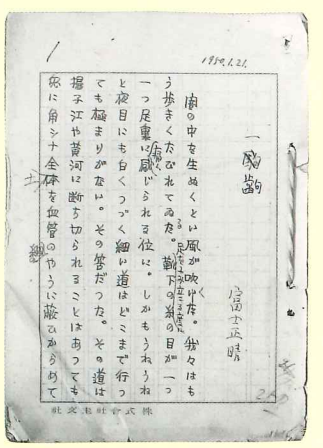 1950.1.21.
富士正晴
闇の中を生ぬくい風が吹く。我々はも
う歩きくたびれてゐた。靴下の糸の目が一つ
一つ足裏に感じられる位い。しかもうねうね
と夜目にも白くつづく細い道はどこまで行つ
ても極まりがない。その筈だつた。その道は
揚子江や黄河に断ち切られることはあつても
に角シナ全体を血管のやうに蔽ひからめて